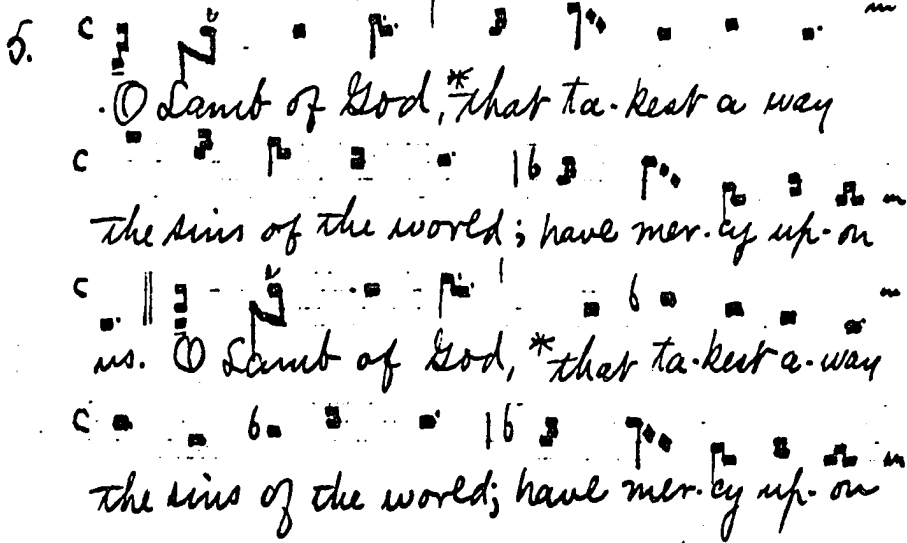 5.
O Lamb of God, * that ta-kest a way
the sins of the world; have mer-cy up-on
us. O Lamb of God, * that ta-kest a-way
the sins of the world; have mer-cy up-on